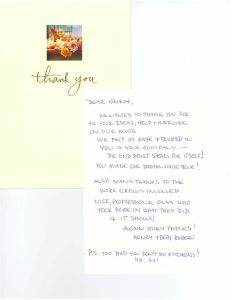 thank you
DEAR GEORGE,
WE WANTED TO THANK YOU FOR
ALL YOUR IDEAS, HELP & HARDWORK
ON OUR HOME.
WE FELT AT EASE & TRUSTED IN
YOU & YOUR COMPANY —
THE END RESULT SPEAKS FOR ITSELF!
YOU MADE OUR DREAM COME TRUE!
ALSO MANY THANKS TO THE
WORK CREWS INVOLVED
NICE, PROFESSIONAL GUYS WHO
TOOK PRIDE IN WHAT THEY DID
& IT SHOWS!
AGAIN MANY THANKS!
HENRY & DEBY
P.S. TOO BAD YOU DON'T DO KITCHENS!
HA! HA!